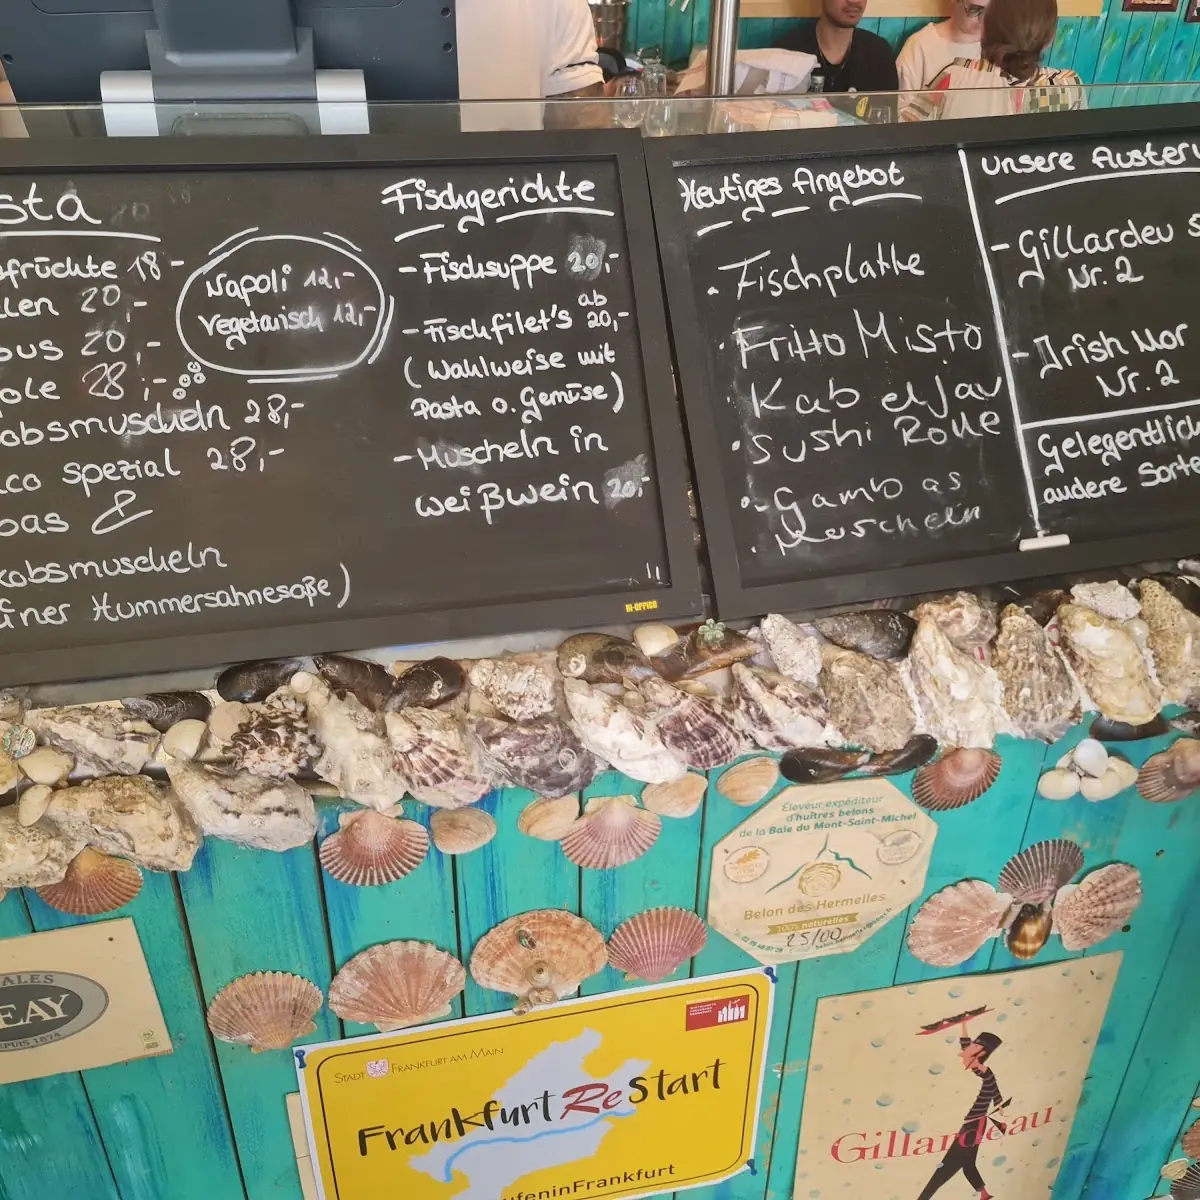 sta
sfrüchte 18-
llen 20,-
bus 20,-
ole 28,-
obsmuscheln 28,-
co spezial 28,-
bas &
kobsmuscheln
einer Hummersahnesoße)
Napoli 12,-
Vegetarisch 12,-
Fischgerichte
- Fischsuppe 20,-
- Fischfilet's ab 20,-
(Wahlweise mit
Pasta o. Gemüse)
- Muscheln in
Weißwein 20,-
BI-OFFICE
Heutiges Angebot
Fischplatte
Fritto Misto
Kab eljau
Sushi Rolle
Gamb as
Muscheln
Unsere Austern
- Gillardeu S
Nr. 2
- Irish Mor
Nr. 2
Gelegentlich
andere Sorte
Éleveur expéditeur
d'huîtres belons
de la Baie du Mont-Saint-Michel
Belon des Hermelles
100% naturelles
25/00
ALES
EAY
DEPUIS 1874
STADT FRANKFURT AM MAIN
Frankfurt ReStart
ufeninFrankfurt
Gillardeau